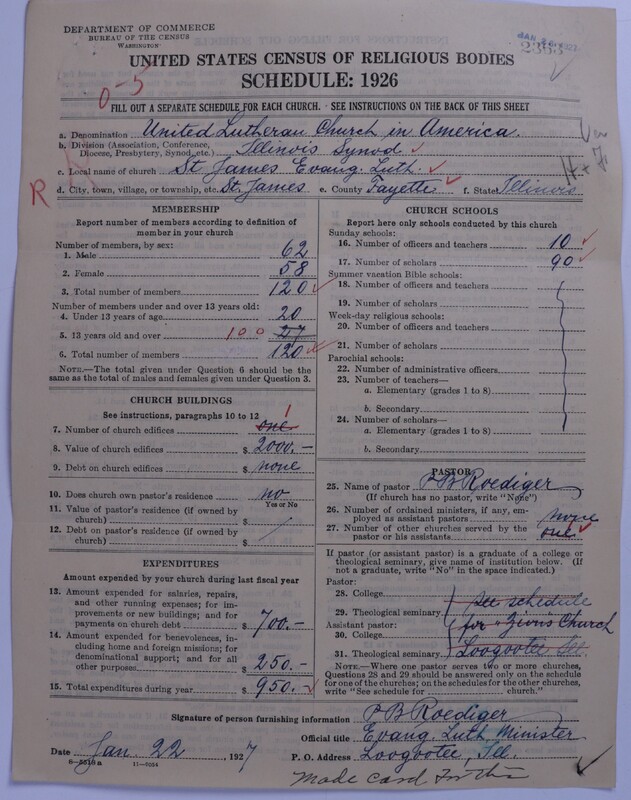 DEPARTMENT OF COMMERCE
BUREAU OF THE CENSUS
WASHINGTON
UNITED STATES CENSUS OF RELIGIOUS BODIES
SCHEDULE: 1926
0-5
FILL OUT A SEPARATE SCHEDULE FOR EACH CHURCH. - SEE INSTRUCTIONS ON THE BACK OF THIS SHEET
a. Denomination United Lutheran Church in America.
b. Division (Association, Conference, Diocese, Presbytery, Synod, etc.) Illinois Synod
c. Local name of church St James Evang. Luth.
R
d. City, town, village, or township, etc. St. James e. County Fayette f. State Illinois
MEMBERSHIP
Report number of members according to definition of member in your church
Number of members, by sex:
1. Male 62
2. Female 58
3. Total number of members 120
Number of members under and over 13 years old:
4. Under 13 years of age 20
5. 13 years old and over 100
6. Total number of members 120
NOTE.—The total given under Question 6 should be the same as the total of males and females given under Question 3.
CHURCH BUILDINGS
See instructions, paragraphs 10 to 12
7. Number of church edifices one 1
8. Value of church edifices $ 2000.—
9. Debt on church edifices $ none
10. Does church own pastor's residence? no
Yes or No
11. Value of pastor's residence (if owned by church) $
12. Debt on pastor's residence (if owned by church) $
EXPENDITURES
Amount expended by your church during last fiscal year
13. Amount expended for salaries, repairs, and other running expenses; for improvements or new buildings; and for payments on church debt $ 700.—
14. Amount expended for benevolences, including home and foreign missions; for denominational support; and for all other purposes $ 250.—
15. Total expenditures during year $ 950.—
CHURCH SCHOOLS
Report here only schools conducted by this church
Sunday schools:
16. Number of officers and teachers 10
17. Number of scholars 90
Summer vacation Bible schools:
18. Number of officers and teachers
19. Number of scholars
Week-day religious schools:
20. Number of officers and teachers
21. Number of scholars
Parochial schools:
22. Number of administrative officers
23. Number of teachers—
a. Elementary (grades 1 to 8)
b. Secondary
24. Number of scholars—
a. Elementary (grades 1 to 8)
b. Secondary
PASTOR
25. Name of pastor P B Roediger
(If church has no pastor, write "None")
26. Number of ordained ministers, if any, employed as assistant pastors none
27. Number of other churches served by the pastor or his assistants one
If pastor (or assistant pastor) is a graduate of a college or theological seminary, give name of institution below. (If not a graduate, write "No" in the space indicated.)
Pastor:
28. College see schedule
29. Theological seminary for Zions Church
Assistant pastor:
30. College
31. Theological seminary Loogootee Ill.
NOTE.—Where one pastor serves two or more churches, Questions 28 and 29 should be answered only on the schedule for one of the churches; on the schedules for the other churches, write "See schedule for church."
Signature of person furnishing information P B Roediger
Official title Evang. Luth Minister
Date Jan. 22, 1927 P. O. Address Loogootee, Ill.
6-5316a 11-9034
Made card for this